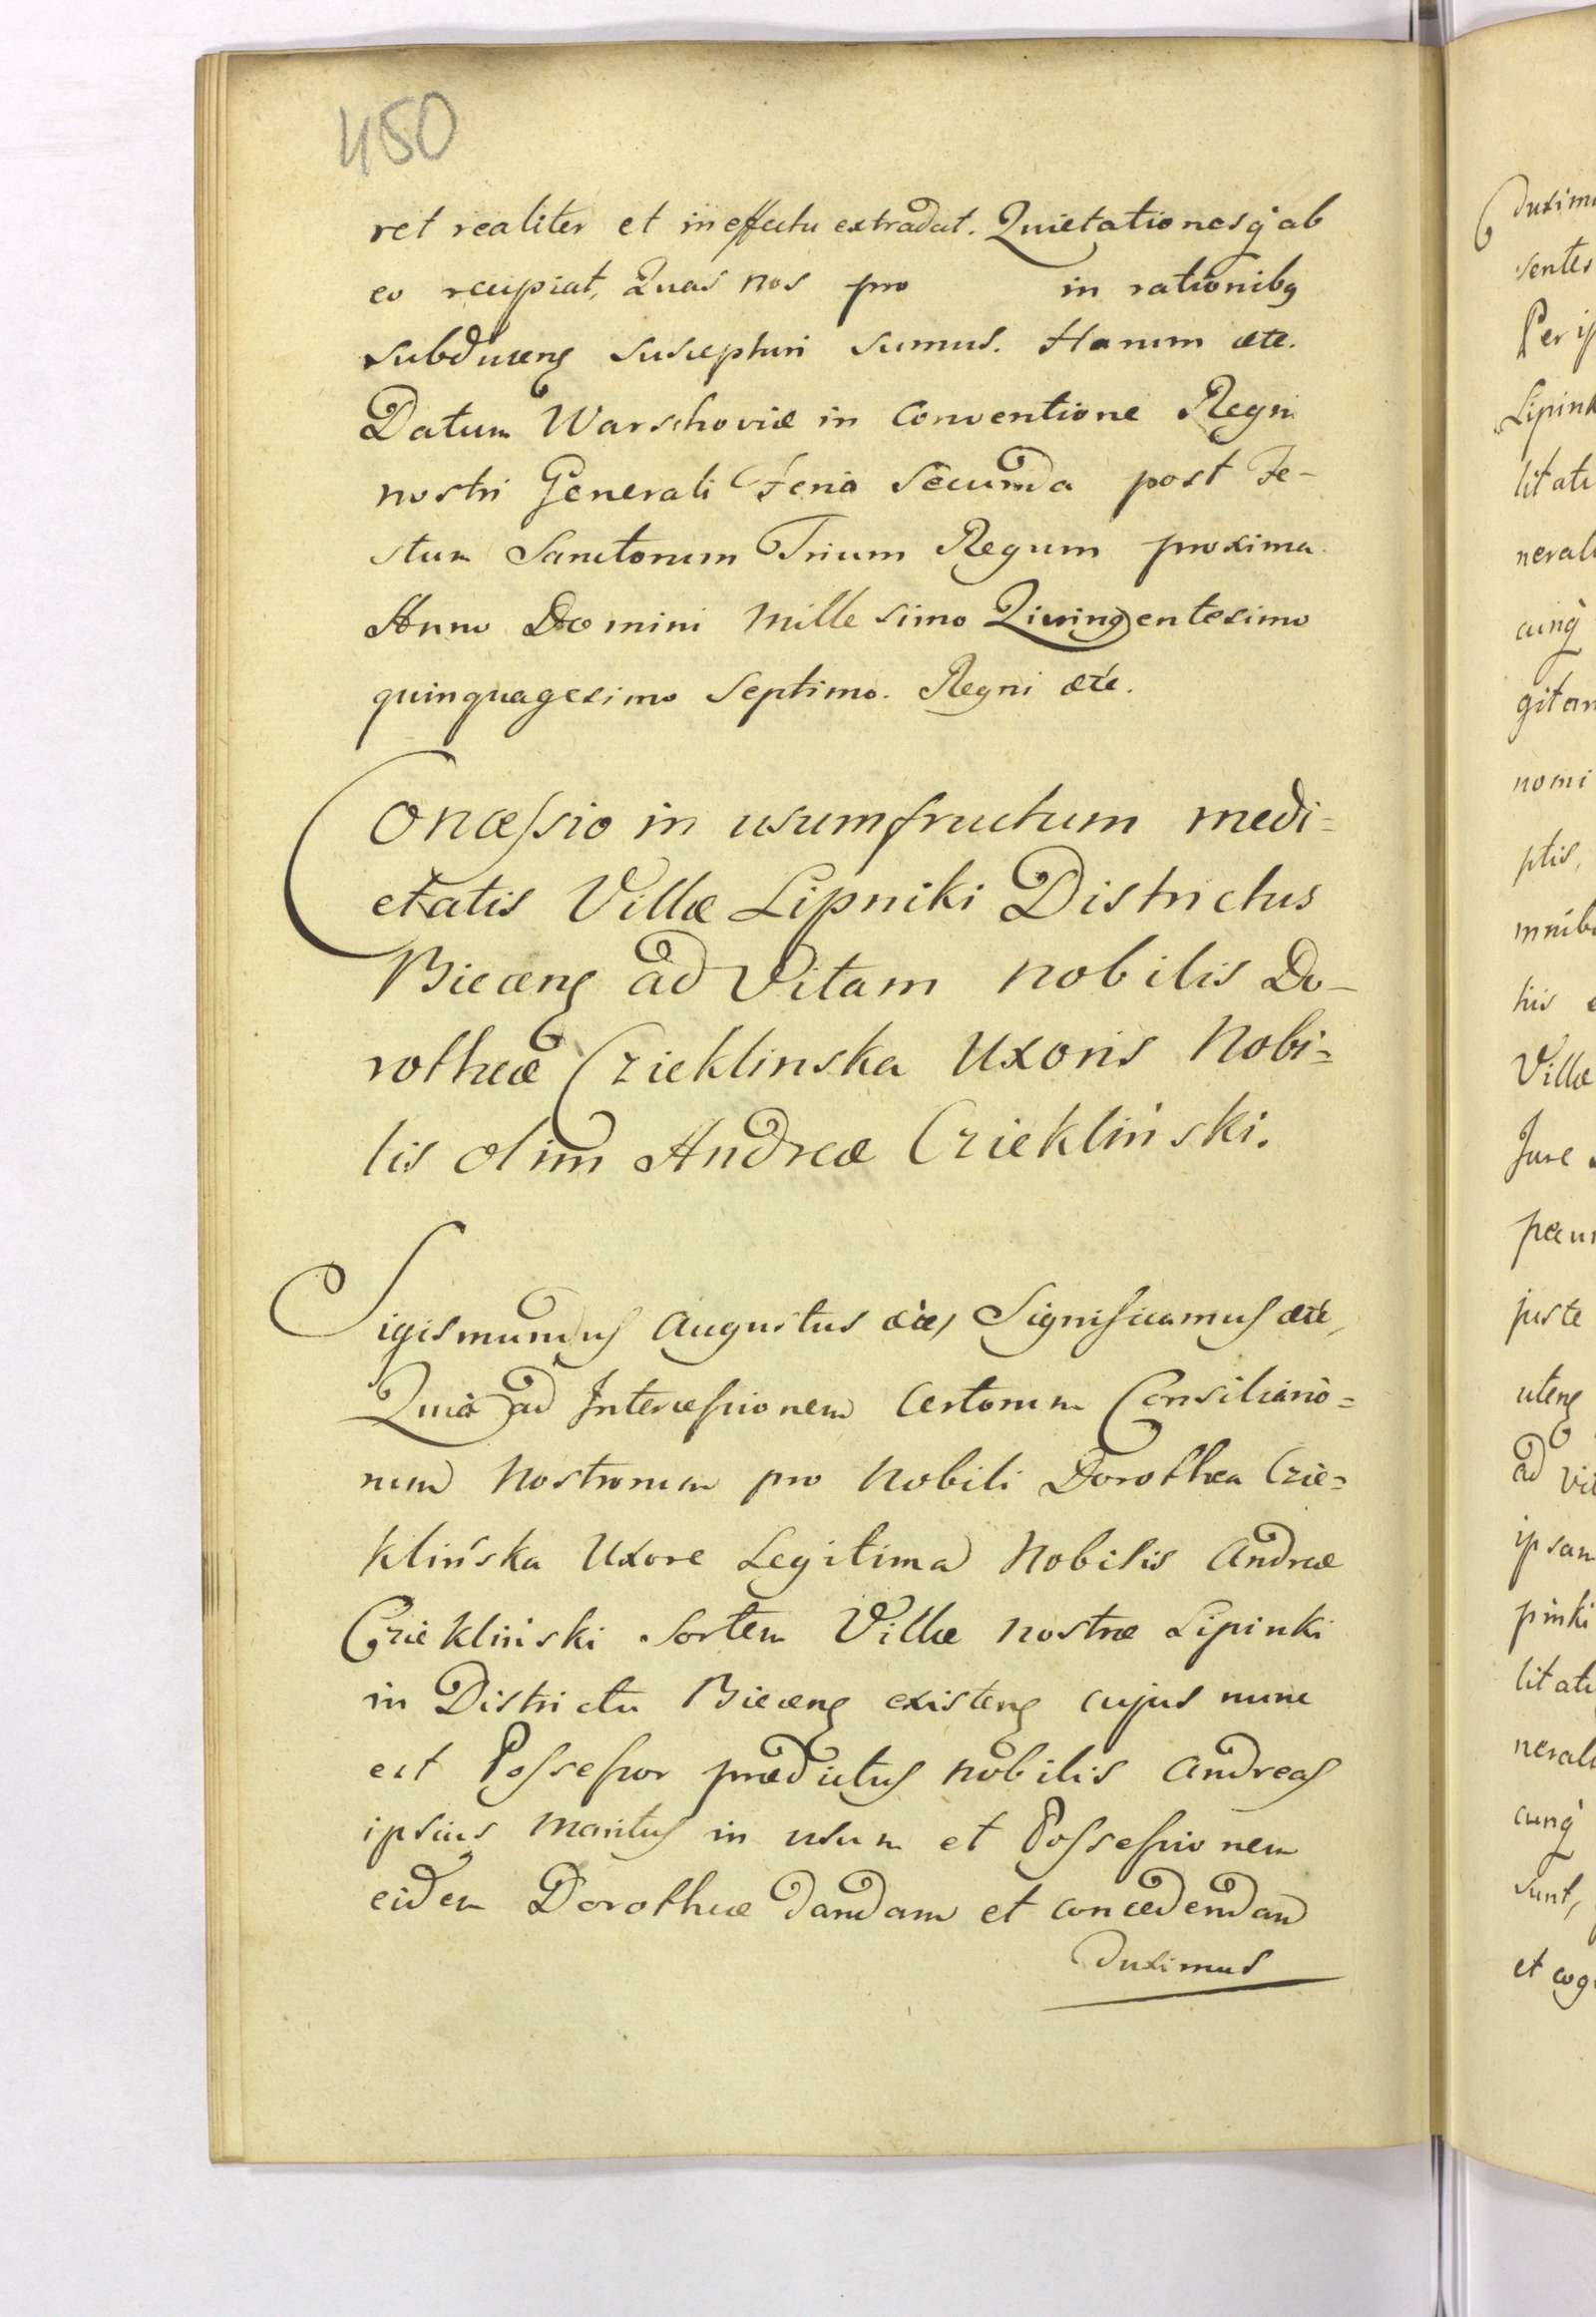 450
ret realiter et in effectu extradat. Quietationesq́ ab
eo recipiat, Quas nos pro in rationibꝫ
subducenꝭ suscepturi sumus. Harum etc.
Datum Warschoviæ in Conventione Regni
nostri Generali Feria Secunda post Fe-
stum Sanctorum Trium Regum proxima
Anno Domini Millesimo Quingentesimo
quinquagesimo Septimo. Regni etc.
Concessio in usumfructum medi=
etatis Villæ Lipniki Districtus
Biecenꝭ ad Vitam nobilis Do-
rotheæ Czieklinska Uxoris Nobi=
lis olim Andreæ Cziekliński.
Sigismundus Augustus etc, Significamus etc,
Quia ad Intercessionem Certorum Consiliario=
rum Nostrorum pro Nobili Dorothea Czie=
klińska Uxore Legitima Nobilis Andreæ
Cziekliński Sortem Villæ nostræ Lipinki
in Districtu Biecenꝭ existenꝭ cujus nunc
est Possessor prædictus nobilis Andreas
ipsius Maritus in usum et Possessionem
eidem Dorotheæ dandam et concedendam
duximus
duxim
sentes
Per ip
Lipink
litati
nerali
cunq́
gitan
nomi
ptis,
mnib
his e
Villæ
Jure
pecun
juste
utenꝭ
ad vit
ipsam
pinki
litati
nerali
cunq́
sunt,
et cog